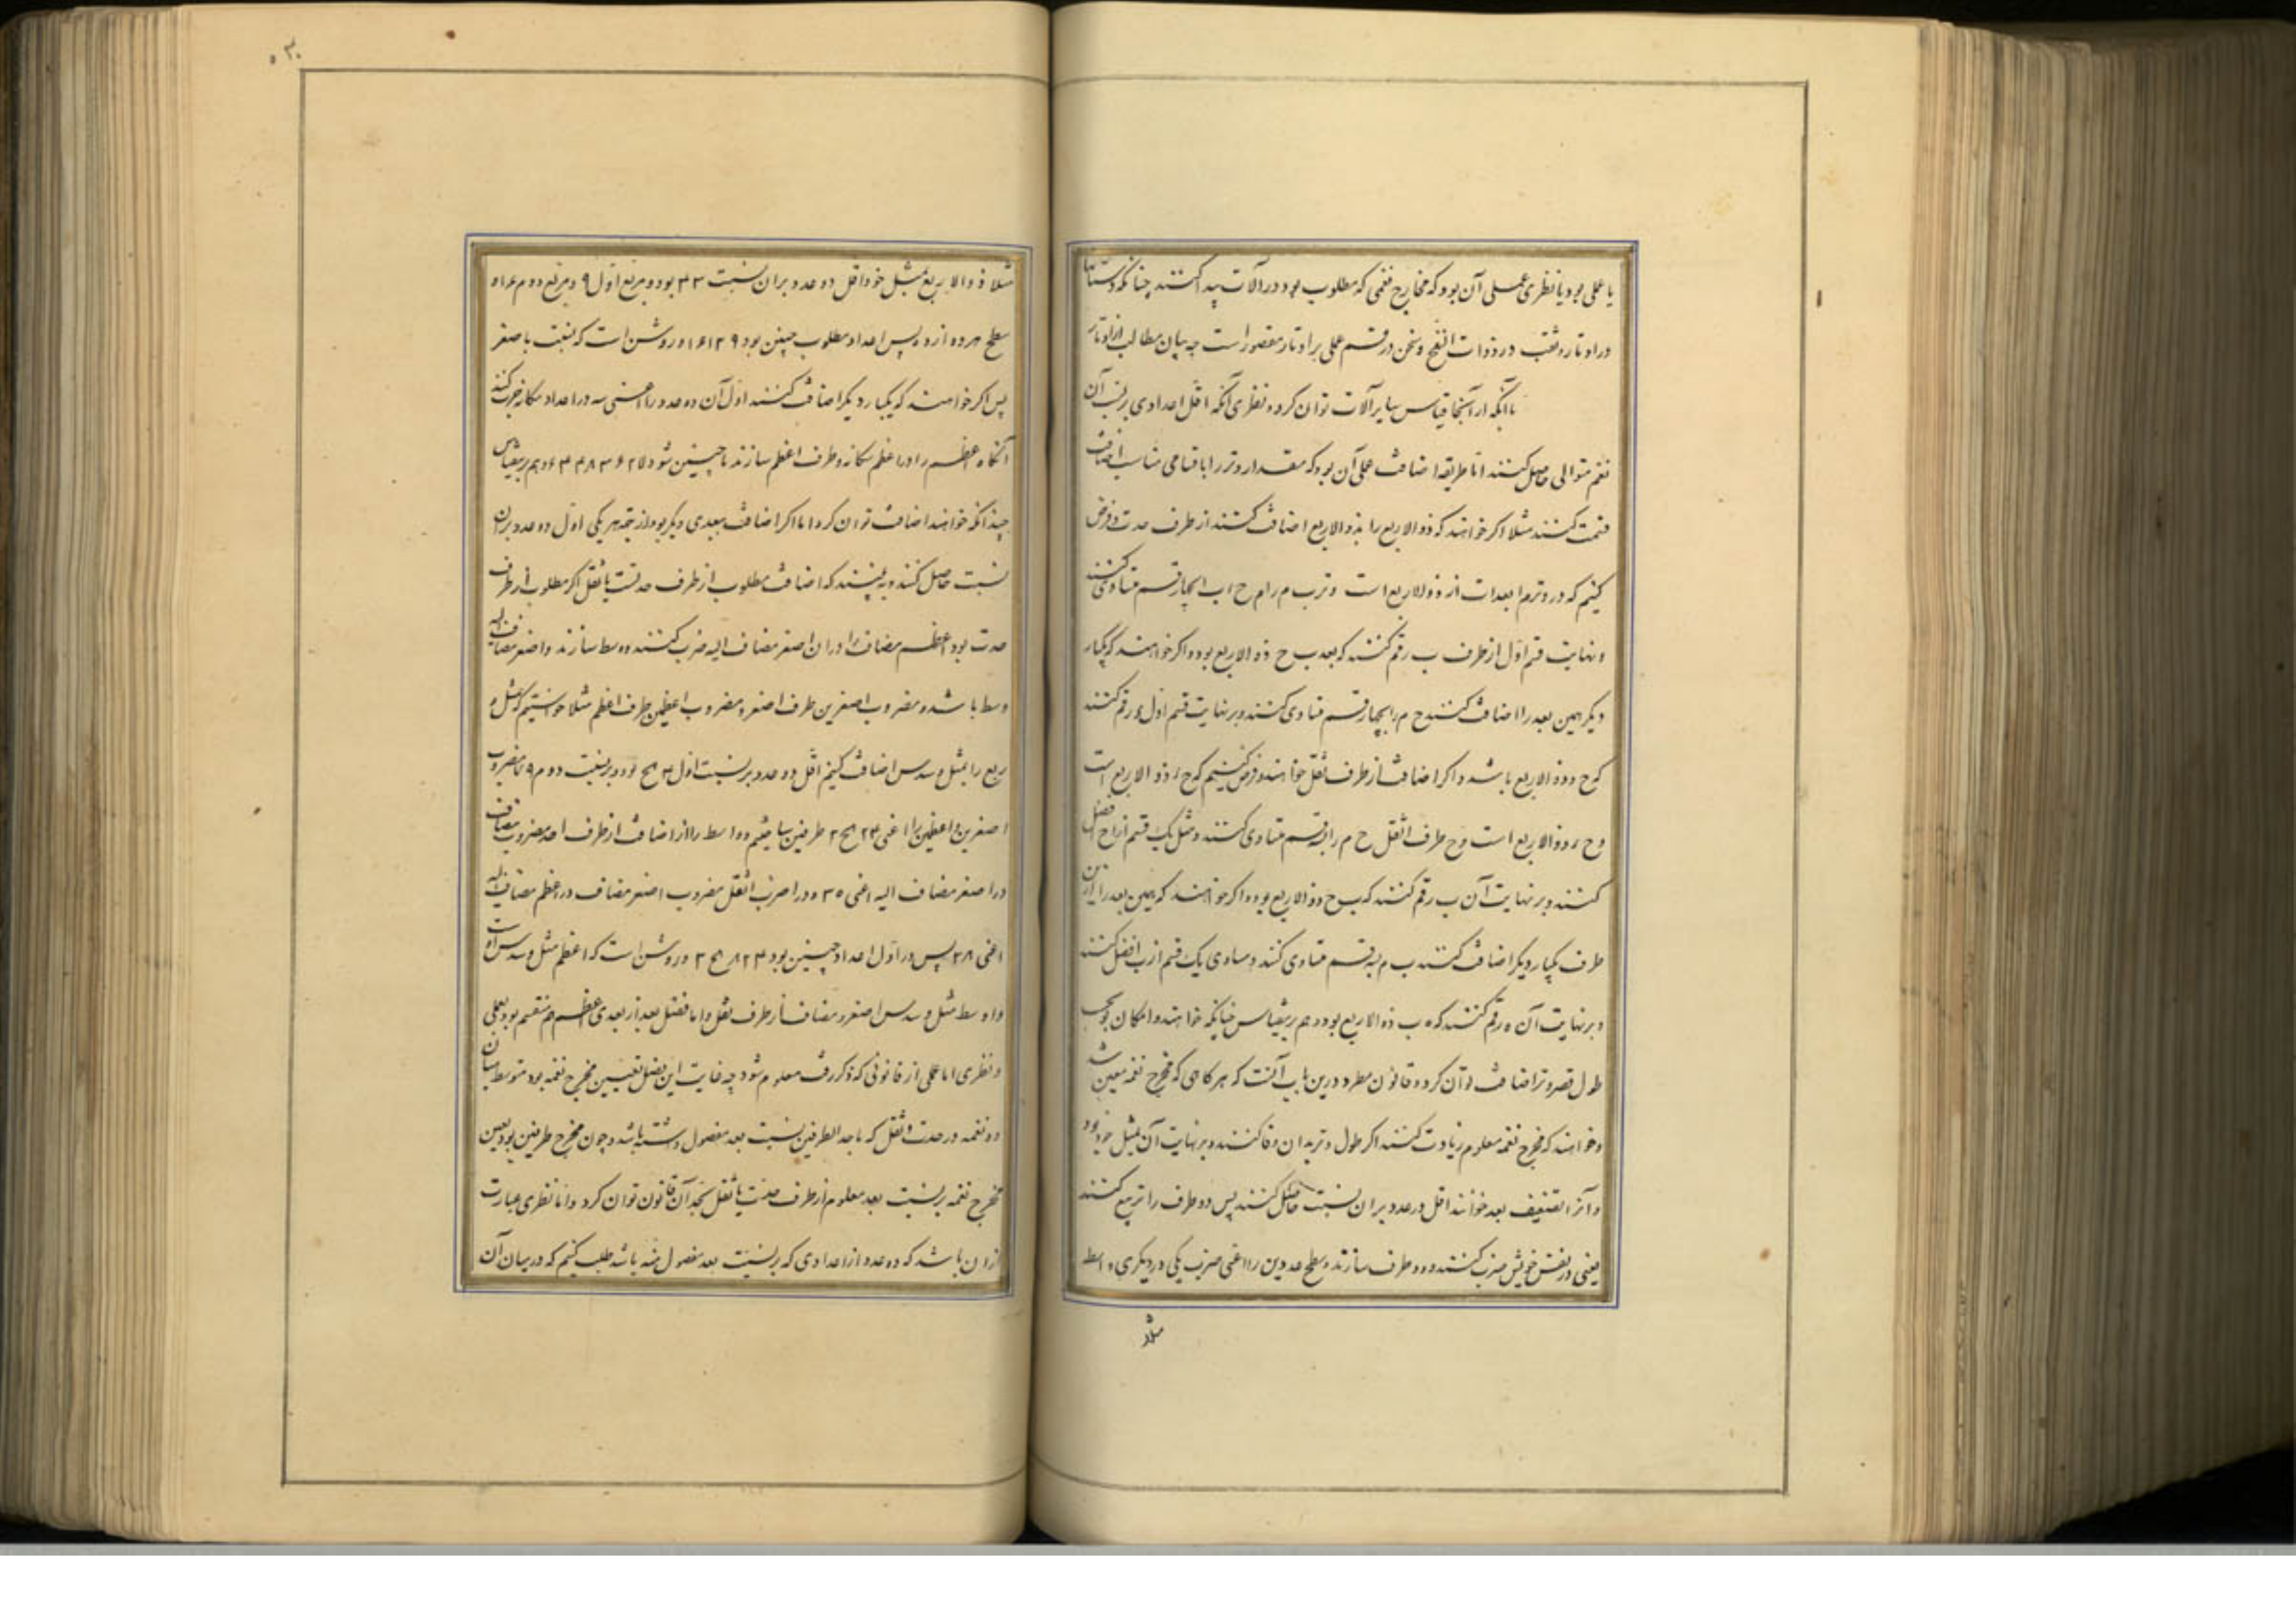 یا عملی بود یا نظری عملی آن بود که مخارج نغمی که مطلوب بود در آلات پیدا کنند چنانکه دستانها
در اوتار و ثقب در ذوات النفخ و سخن در قسم عملی بر اوتار مقصور است چه بیان مطالب از اوتار
با آنکه از آنجا قیاس سایر آلات توان کرد و نظری آنکه اقل اعدادی بر نسب آن
نغم متوالی حاصل کنند اما طریقه اضافت عملی آن بود که مقدار وتر را باقسامی مناسب اضافت
قسمت کنند مثلا اگر خواهند که ذو الاربع را بذو الاربع اضافت کنند از طرف حدت فرض
کنیم که در وتر ا م ابعد ا ح از ذو الاربع است و تر ب م را م ح اب بچهار قسم متساوی کنند
و نهایت قسم اول از طرف ب رقم کنند که بعد ب ح ذو الاربع بود و اگر خواهند که یکبار
دیگر همین بعد را اضافت کنند ح م را بچهار قسم متساوی کنند و بر نهایت قسم اول ء رقم کنند
که ح د ذو الاربع باشد و اگر اضافت از طرف ثقل خواهند فرض کنیم که ح ء ذو الاربع است
و ح ء ذو الاربع است و ح طرف اثقل ح م را بسه قسم متساوی کنند و مثل یک قسم از ا ح فصل
کنند و بر نهایت آن ب رقم کنند که ب ح ذو الاربع بود و اگر خواهند که همین بعد را ازین
طرف یکبار دیگر اضافت کنند ب م بسه قسم متساوی کنند و مساوی یک قسم از ب ا فصل کنند
و بر نهایت آن ه رقم کنند که ه ب ذو الاربع بود و هم برینقیاس چنانکه خواهند و امکان بحسب
طول و قصر وتر اضافت توان کرد و قانون مطرد درین باب آنست که هر گاهی که مخرج نغمه معین شد
و خواهند که مخرج نغمه معلوم زیادت کنند اگر طول وتر بدان وفا کنند و بر نهایت آن بمثل خود بود
و آنرا تضعیف بعد خوانند اقل دو عدد بر ان نسبت حاصل کنند پس دو طرف را تربیع کنند
یعنی در نفس خویش ضرب کنند و دو طرف سازند و سطح عددین را اعنی ضرب یکی در دیگری واسط
مثلا
مثلا ذو الاربع بمثل خود اقل دو عدد بر ان نسبت ۳ ۴ بود و مربع اول ۹ و مربع دوم ۱۶ و
سطح هر دو ۱۲ پس اعداد مطلوب چنین بود ۹ ۱۲ ۱۶ و روشن است که نسبت با صغر
پس اگر خواهند که یکبار دیگر اضافت کنند اول آن دو عدد را اعنی سه در اعداد سه گانه ضرب کنند
آنگاه اعظم را در اعظم سه گانه و طرف اعظم سازند تا چنین شود ۲۷ ۳۶ ۴۸ ۶۴ و هم برینقیاس
چندانکه خواهند اضافت توان کرد اما اگر اضافت ببعدی دیگر بود از جهة هر یکی اول دو عدد بر ان
نسبت حاصل کنند و ببینند که اضافت مطلوب از طرف حدتست یا ثقل اگر مطلوب از طرف
حدت بود اعظم مضاف را در ان اصغر مضاف الیه ضرب کنند و وسط سازند و اصغر مضاف الیه
وسط باشد و مضروب اصغرین طرف اصغر و مضروب اعظمین طرف اعظم مثلا خواستیم که مثل و
ربع را بمثل و سدس اضافت کنیم اقل دو عدد بر نسبت اول ۴ ۵ بود و بر نسبت دوم ۶ ۷ مضروب
اصغرین و اعظمین را اعنی ۲۴ ۳۵ طرفین ساختیم و واسط را از اضافت از طرف احد مضروب مضاف
در اصغر مضاف الیه اعنی ۳۰ و در اضرب اثقل مضروب اصغر مضاف در اعظم مضاف الیه
اعنی ۲۸ پس در اول اعداد چنین بود ۲۴ ۲۸ ۳۵ و روشن است که اعظم مثل و سدس اوست
و اوسط مثل و سدس اصغر و مضاف از طرف ثقل و اما فصل بعد از بعدی اعظم هم منقسم بود بعملی
و نظری اما عملی از قانونی که ذکر رفت معلوم شود چه غایت این فصل تعیین مخرج نغمه بود متوسط میان
دو نغمه در حدت و ثقل که با حد الطرفین نسبت بعد مفصول داشته باشد و چون مخرج طرفین بود تعیین
مخرج نغمه بر نسبت بعد معلوم از طرف حدت یا ثقل بحد آن قانون توان کرد و اما نظری عبارت
از ان باشد که دو عدد از اعدادی که بر نسبت بعد مفصول منه باشد طلب کنیم که در میان آن